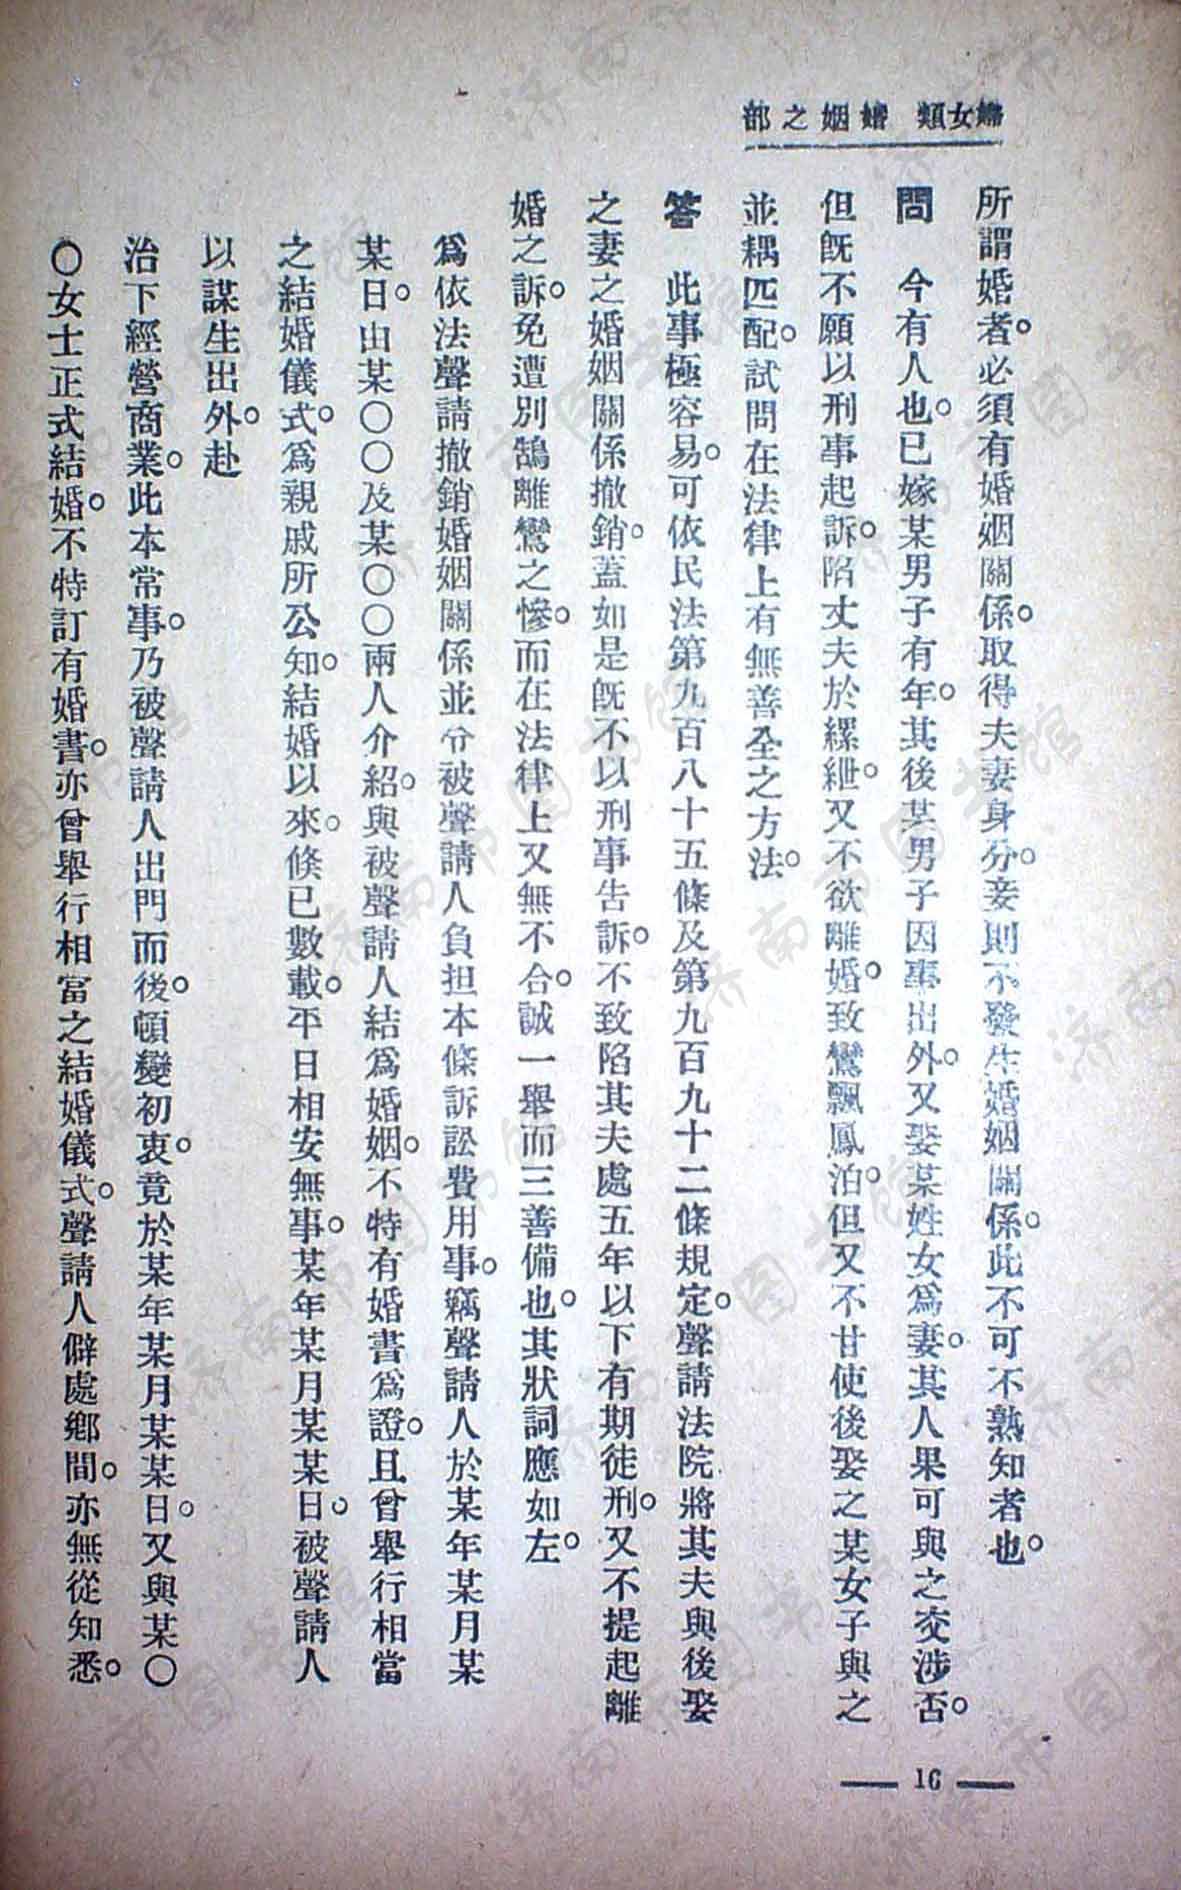 婦女類 婚姻之部
所謂婚者。必須有婚姻關係。取得夫妻身分。妾則不發生婚姻關係。此不可不熟知者也。
問　今有人也。已嫁某男子有年。其後某男子因事出外。又娶某姓女爲妻。其人果可與之交涉否。
但旣不願以刑事起訴。陷丈夫於縲紲。又不欲離婚。致鸞飄鳳泊。但又不甘使後娶之某女子與之
並耦匹配。試問在法律上有無善全之方法。
答　此事極容易。可依民法第九百八十五條及第九百九十二條規定。聲請法院將其夫與後娶
之妻之婚姻關係撤銷。蓋如是旣不以刑事告訴。不致陷其夫處五年以下有期徒刑。又不提起離
婚之訴。免遭別鵠離鸞之慘。而在法律上又無不合。誠一舉而三善備也。其狀詞應如左。
爲依法聲請撤銷婚姻關係並令被聲請人負担本條訴訟費用事。竊聲請人於某年某月某
某日。由某〇〇及某〇〇兩人介紹。與被聲請人結爲婚姻。不特有婚書爲證。且曾舉行相當
之結婚儀式。爲親戚所公知。結婚以來。倏已數載。平日相安無事。某年某月某某日。被聲請人
以謀生出外。赴
治下經營商業。此本常事。乃被聲請人出門而後。頓變初衷。竟於某年某月某某日。又與某〇
〇女士正式結婚。不特訂有婚書。亦曾舉行相當之結婚儀式。聲請人僻處鄉間。亦無從知悉。
— 16 —
济南市图书馆